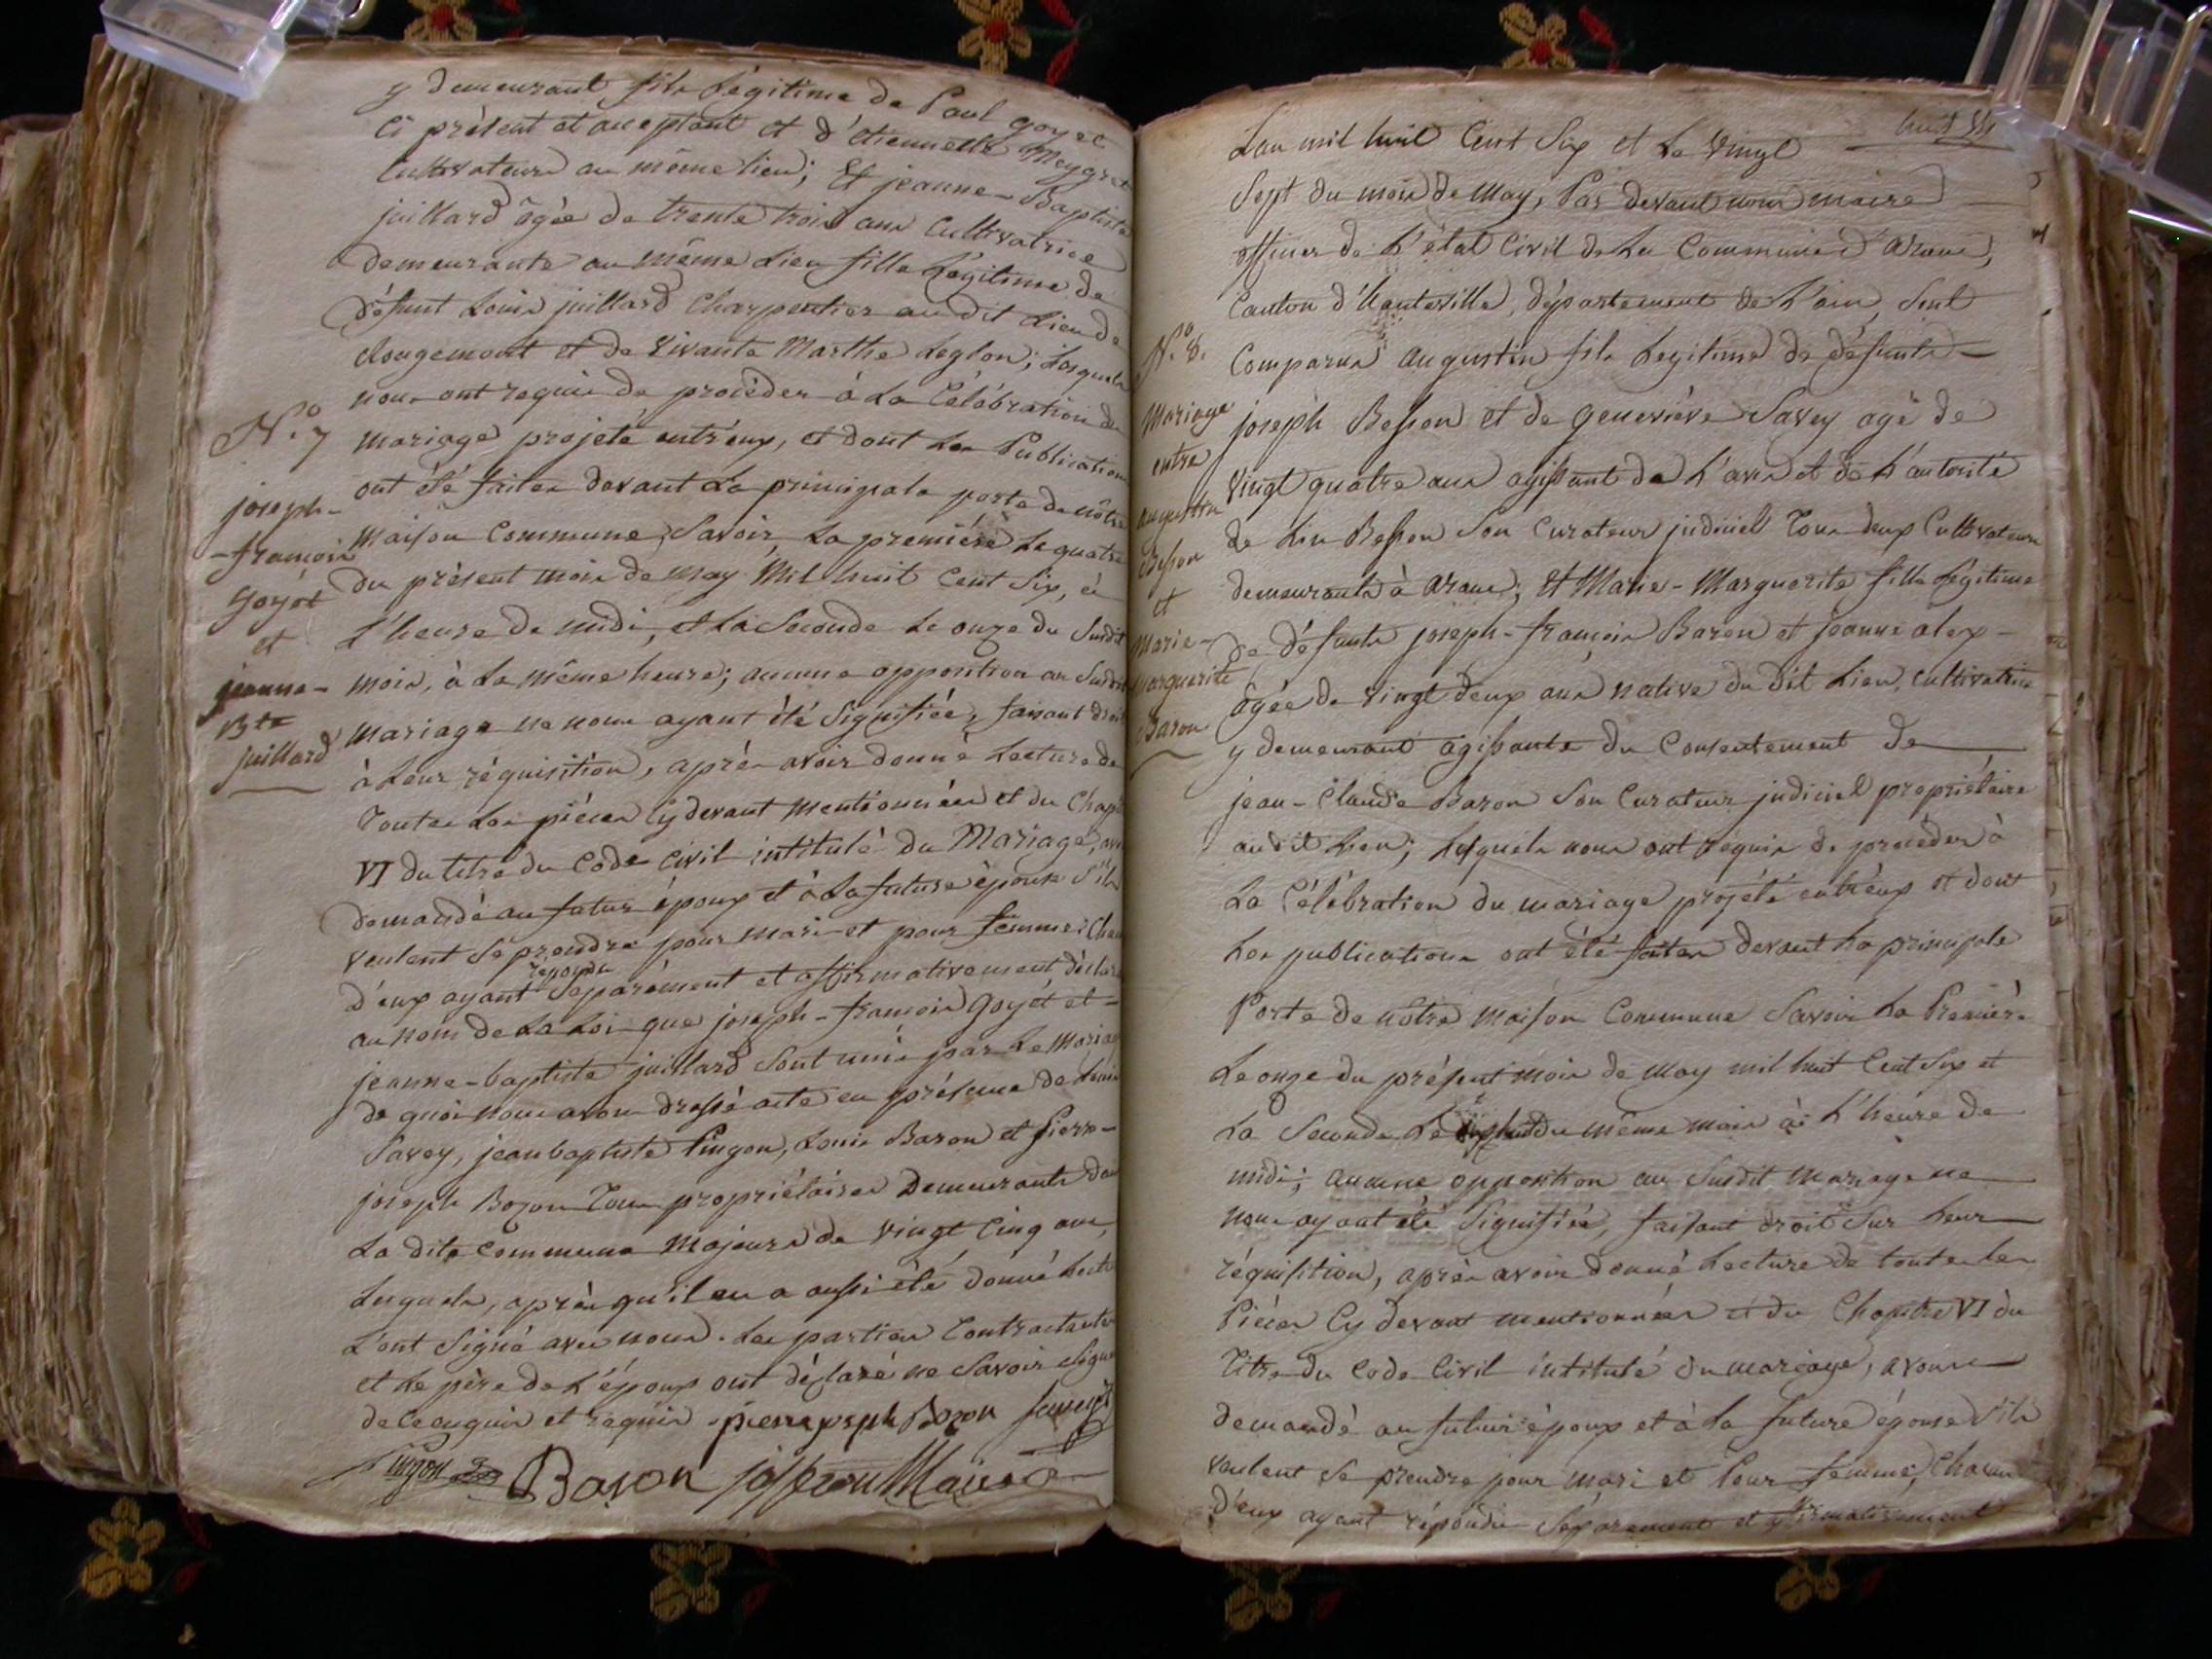 y demeurant fils légitime de Paul Goyet
ci présent et acceptant et d'etiennette Meygret
Cultivateurs au même lieu; Et jeanne-Baptiste
juillard âgée de trente trois ans Cultivatrice
demeurante au même lieu fille légitime de
défunt Louis juillard Charpentier au dit lieu de
Rougemont et de vivante Marthe Leglon; Lesquels
nous ont requis de procéder à la Célébration du
mariage projeté entr'eux, et dont les Publications
ont été faites devant la principale porte de nôtre
Maison Commune, Savoir, la première le quatre
du présent mois de may Mil huit Cent Six, à
l'heure de midi, et la Seconde le onze du Susdit
mois, à la même heure; aucune opposition au Susdit
Mariage ne nous ayant été Signifiée, faisant droit
à leur réquisition, après avoir donné lecture de
Toutes les pièces Cy devant mentionnées et du Chapitre
VI du titre du Code civil intitulé du Mariage, avons
demandé au futur époux et à la future épouse S'ils
veulent Se prendre pour mari et pour femme; Chacun
répondu
d'eux ayant Séparément et affirmativement, déclarons
au nom de la Loi que joseph-françois Goyét et
jeanne-baptiste juillard Sont unis par le Mariage
de quoi nous avons dressé acte en présence de Louis
Savey, jean baptiste Pingon, Louis Baron et pierre-
joseph Bozon Tous propriétaires Demeurants dans
La dite Commune Majeurs de vingt Cinq ans,
Lesquels, après qu'il en a aussi été donné lecture
L'ont Signé avec nous. Les parties Contractantes
et le père de l'époux ont déclaré ne Savoir Signer
de ce enquis et requis. pierre joseph Bozon Savey
Pingon Baron Maire
N.° 7
joseph-
-françois
Goyét
et
jeanne-
Bte
juillard
L'an mil huit Cent Six et le vingt
Sept du mois de May, Par devant nous maire
officier de l'état Civil de la Commune d'aranc,
Canton d'hauteville, département de l'ain, Sont
Comparus augustin fils legitime de défunts
joseph Besson et de geneviève Savey agé de
vingt quatre ans agissant de l'avis et de l'autorité
de Besson Son Curateur judiciel Tous deux Cultivateurs
demeurants à aranc; Et Marie-Marguerite fille légitime
de défunts joseph-françois Baron et jeanne alex
âgée de vingt deux ans native du dit lieu, cultivatrice
y demeurant agissante du Consentement de
jean-Claude Baron Son Curateur judiciel propriétaire
au dit lieu; Lesquels nous ont requis de procéder à
La Célébration du mariage projété entr'eux et dont
Les publications ont été faites devant la principale
Porte de nôtre Maison Commune Savoir La Première
Le onze du présent mois de May mil huit Cent Six et
La Seconde Le dix huit du même mois à l'heure de
midi; aucune opposition au Susdit mariage ne
nous ayant été Signifiée, faisant droit Sur leur
réquisition, après avoir donné lecture de toutes les
Pièces Cy devant mentionnées et du Chapitre VI du
Titre du Code Civil intitulé du mariage, avons
demandé au futur époux et à la future épouse S'ils
veulent Se prendre pour mari et Pour femme, Chacun
d'eux ayant répondu Séparement et affirmativement
N.° 8.
Mariage
entre
augustin
Besson
et
Marie-
Marguerite
Baron